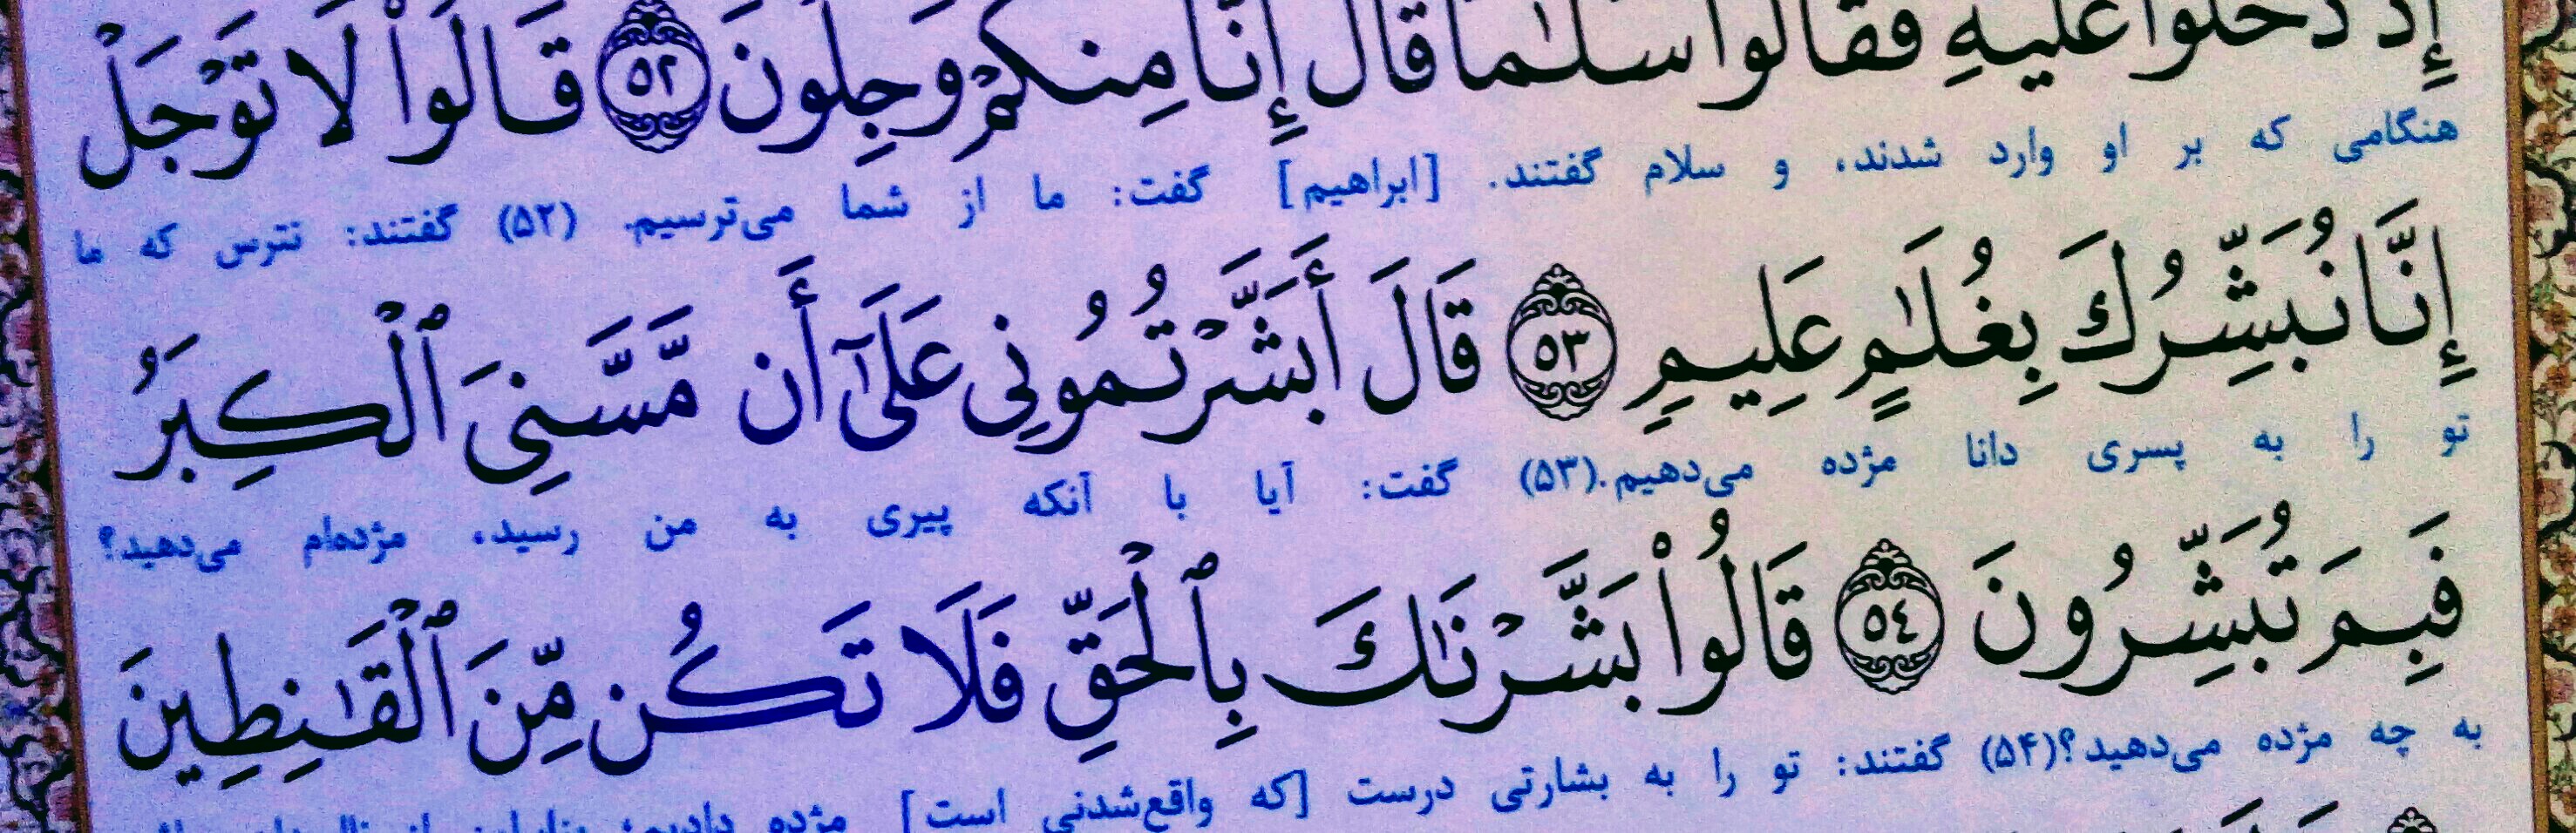 إِذْ دَخَلُوا۟ عَلَيْهِ فَقَالُوا۟ سَلَٰمًا قَالَ إِنَّا مِنكُمْ وَجِلُونَ ٥٢ قَالُوا۟ لَا تَوْجَلْ
هنگامی که بر او وارد شدند، و سلام گفتند. [ابراهیم] گفت: ما از شما می‌ترسیم. (۵۲) گفتند: نترس که ما
إِنَّا نُبَشِّرُكَ بِغُلَٰمٍ عَلِيمٍ ٥٣ قَالَ أَبَشَّرْتُمُونِى عَلَىٰٓ أَن مَّسَّنِىَ ٱلْكِبَرُ
تو را به پسری دانا مژده می‌دهیم.(۵۳) گفت: آیا با آنکه پیری به من رسید، مژده‌ام می‌دهید؟
فَبِمَ تُبَشِّرُونَ ٥٤ قَالُوا۟ بَشَّرْنَٰكَ بِٱلْحَقِّ فَلَا تَكُن مِّنَ ٱلْقَٰنِطِينَ
به چه مژده می‌دهید؟(۵۴) گفتند: تو را به بشارتی درست [که واقع‌شدنی است] مژده دادیم؛